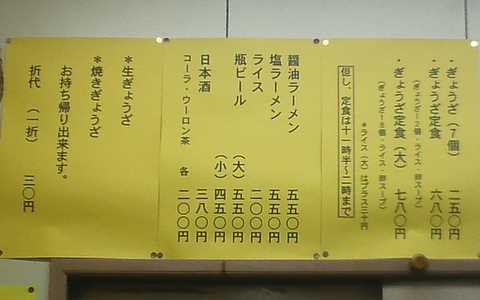 ・ぎょうざ(7個) 二五〇円
・ぎょうざ定食 六八〇円
(ぎょうざ12個・ライス・卵スープ)
・ぎょうざ定食(大) 七八〇円
(ぎょうざ18個・ライス・卵スープ)
*ライス(大)はプラス三十円
但し、定食は十一時半~二時まで
醤油ラーメン 五五〇円
塩ラーメン 五五〇円
ライス 二〇〇円
瓶ビール (大) 五五〇円
(小) 四五〇円
日本酒 三八〇円
コーラ・ウーロン茶 各 二〇〇円
*生ぎょうざ
*焼きぎょうざ
お持ち帰り出来ます。
折代 (一折) 三〇円